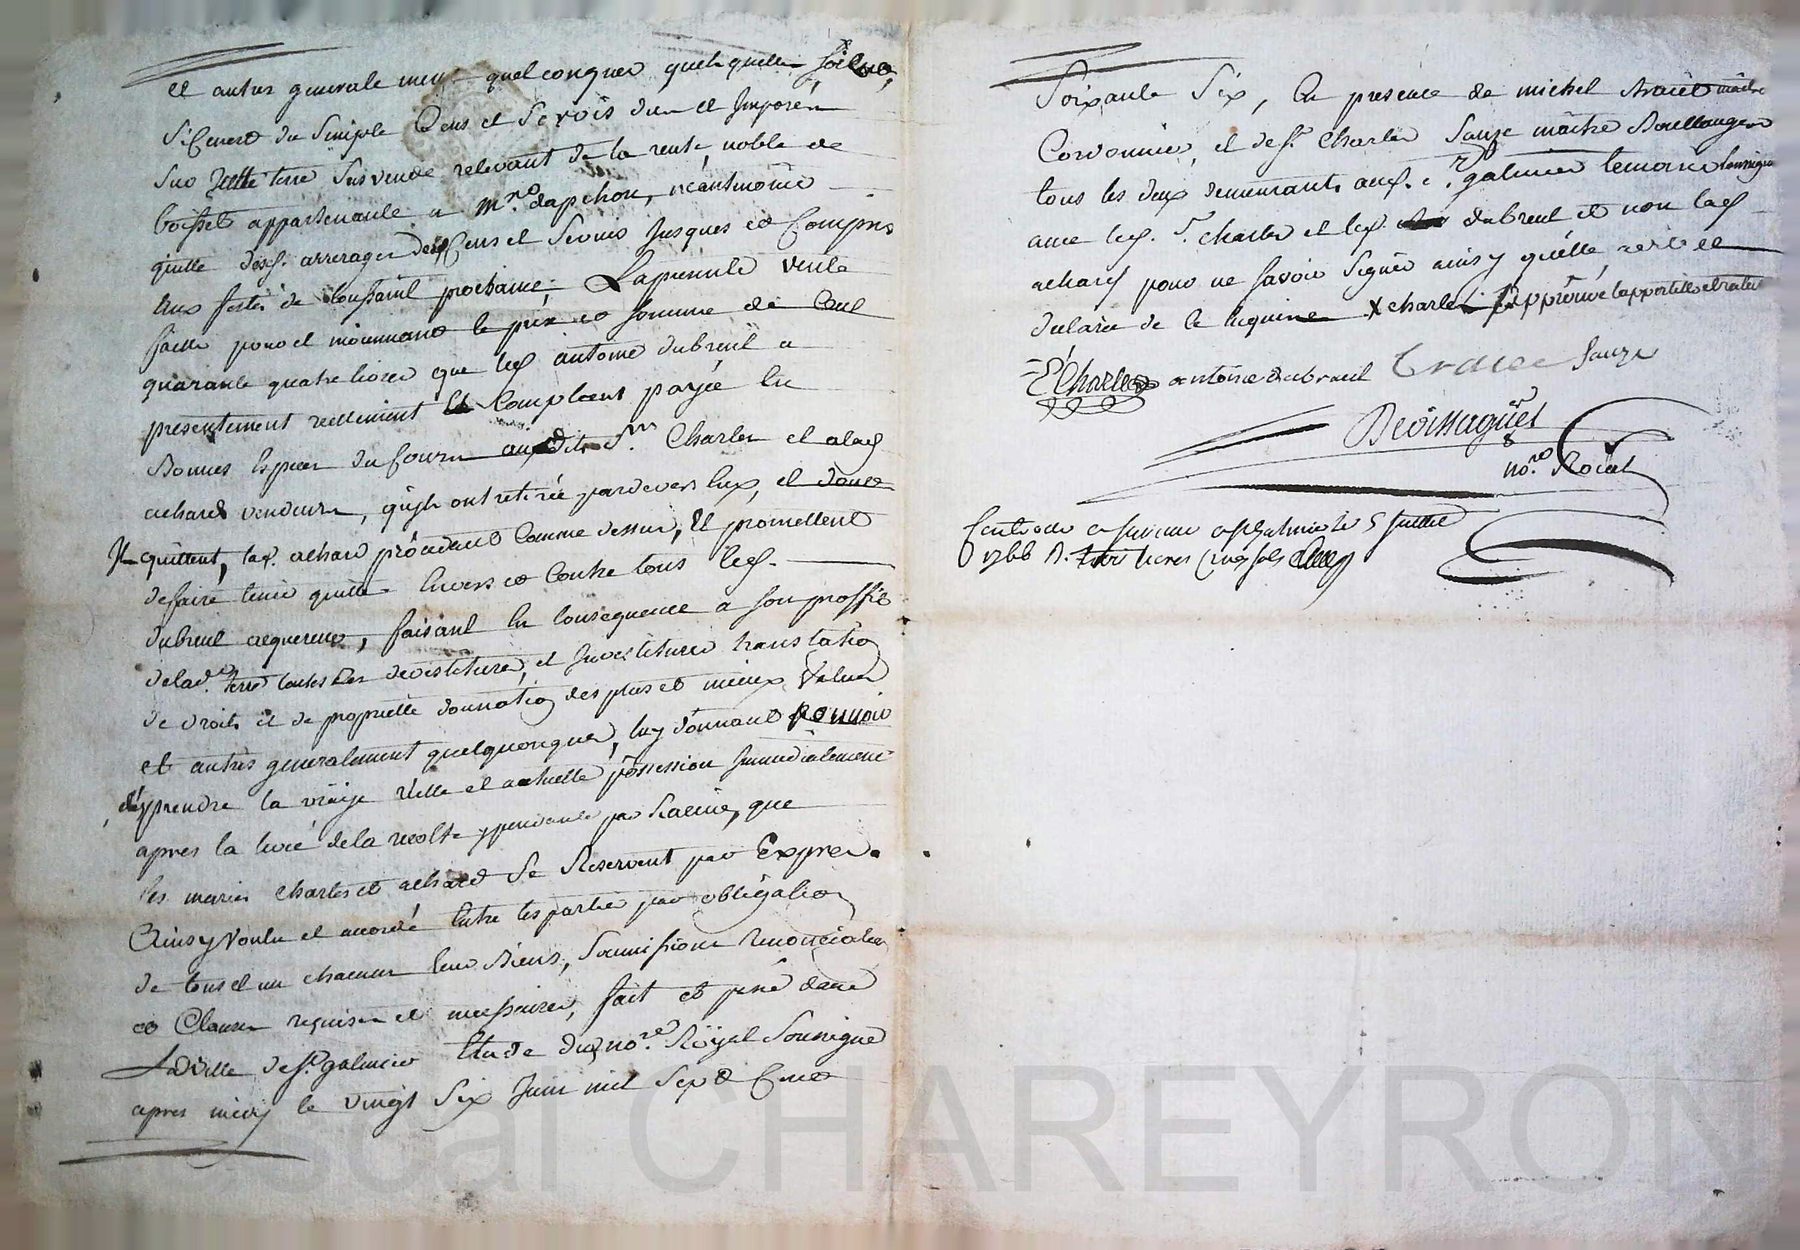 et autres generalement quelconques quelquelles soient,
Si Censd du Simple Cens et Servois du et Imposés
Sus Jtelle terre Sus vendue relevant de la rente noble de
boisset appartenante a Mr. dapchon, néantmoins
quitte desd. arrerages desd Cens et Servis Jusques et Compris
aux festes de toussaint prochaine; La presente vente
faitte pour et moiennant le prix et somme de Cent
quarante quatre livres que led antoine dubreuil a
presentement réellement et Comptant payée en
Bonnes Espèces du Cours auxdits Srs. Charles et alad
achard vendeurs, qu'jls ont retirée pardevers Eux, et dont
Jls quittent, lad. achard procedant Comme dessus, Et promettent
de faire tenir quitte Envers et Contre tous led.
dubreuil acquereur, faisant En Consequence a son proffit
de lad. terre toutes Les devestitures, et Jnvestitures translation
de droits et de proprietté donnation des plus et mieux Values
et autres generalement quelquonques, luy donnant pouvoir
d'en prendre la vraye réelle et actuelle possession Jmmediatement
apres la levé de la recolte y pendante par Racine, que
les mariés Charles et achard Se Reservent par Exprès.
Ainsy Voulu et accordé Entre les parties par obligation
de tous et un chacuns leurs Biens, Soumissions Renonciations
et Clauses requises et necessaires, fait et passé dans
La Ville de St. galmier Etude dud no.re Royal Soussigné
apres midy le vingt Six Juin mil Sept Cent
Soixante Six, En presence de michel trac maitre
Cordonnier, et de Sr. Charles Sauze maitre Boullanger
tous les deux demeurants aud. St. galmier temoins soussignés
avec led. Sr. charles et led. dubreuil et non lad
achard pour ne savoir Signer ainsy qu'elle a dit et
declaré de ce Enquise x charles j'approuve l'appostille et rature
Charles antoine dubreuil Sauze
no.re Roial
Controllé a St Galmier le 5 Juillet
1766 R. livres Cinq sols
Pascal CHAREYRON